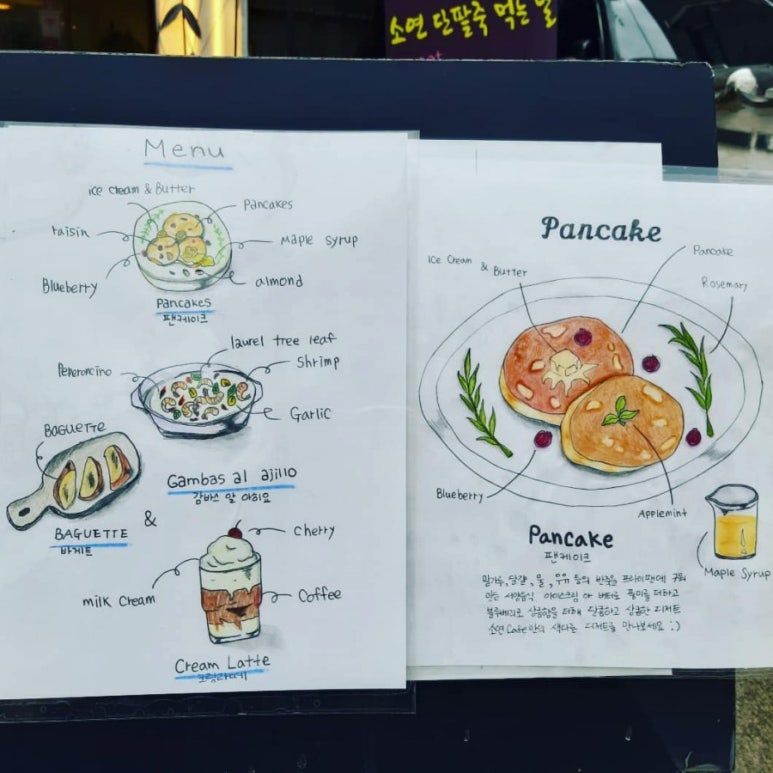 소연 단팥죽 먹는 날
Menu
ice cream & Butter
Pancakes
raisin
Maple syrup
Blueberry
almond
Pancakes
팬케이크
laurel tree leaf
Peperoncino
Shrimp
Garlic
BAGUETTE
Gambas al ajillo
감바스 알 아히요
BAGUETTE
바게트
&
Cherry
milk Cream
Coffee
Cream Latte
크림라떼
Pancake
Ice Cream & Butter
Pancake
Rosemary
Blueberry
Applemint
Maple Syrup
Pancake
팬케이크
밀가루, 달걀, 물, 우유 등의 반죽을 프라이팬에 구워
만든 서양음식 아이스크림 or 버터로 풍미를 더하고
블루베리로 상큼함을 더해 달콤하고 상큼한 디저트
소연 Cafe만의 색다른 디저트를 만나보세요 :)